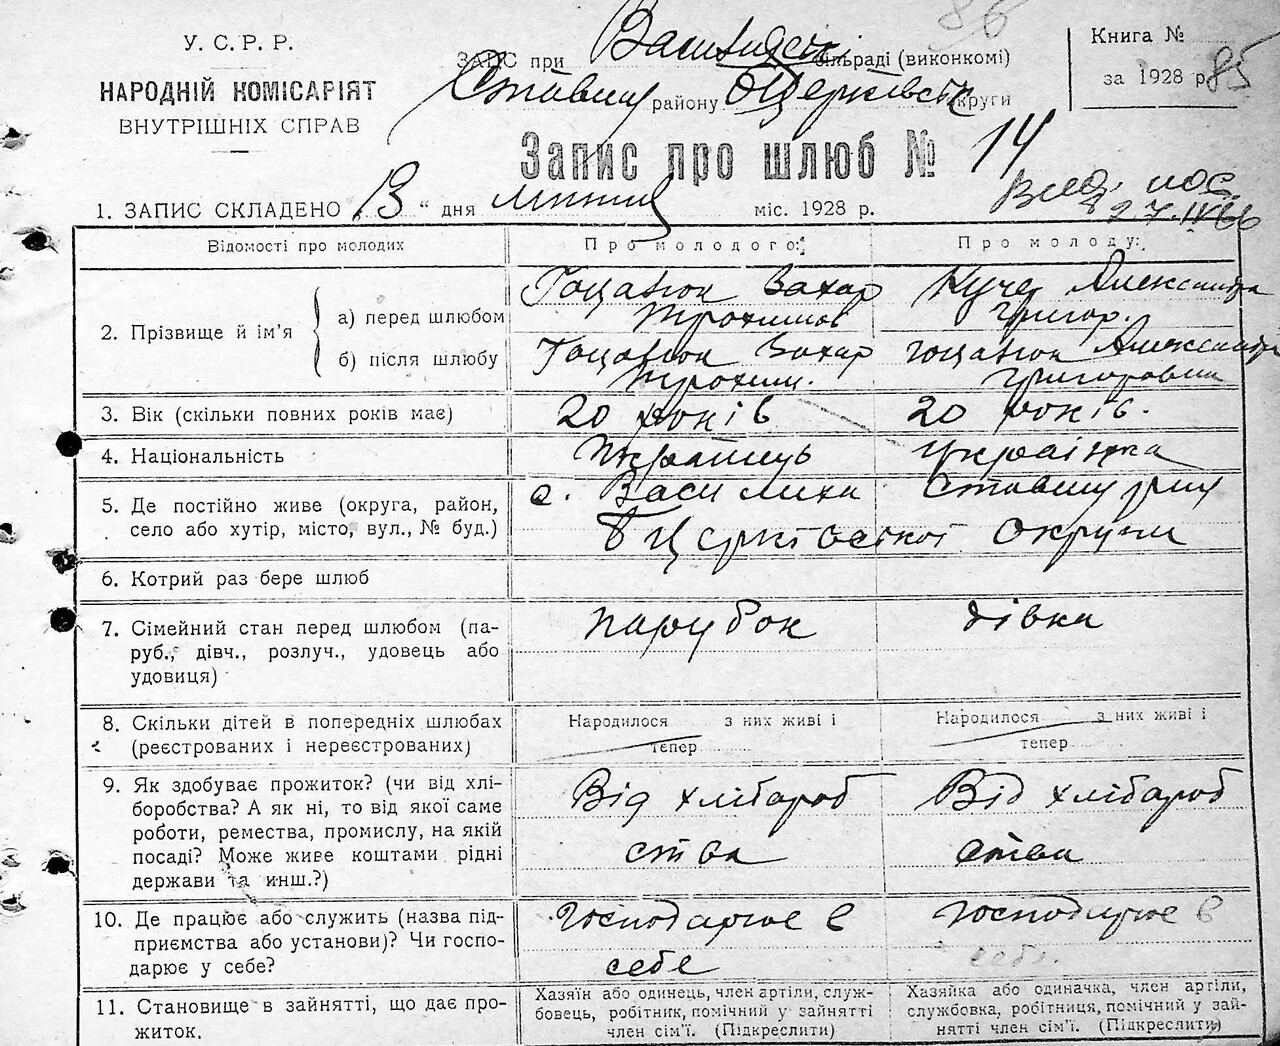 86
У. С. Р. Р.
НАРОДНІЙ КОМІСАРІЯТ
ВНУТРІШНІХ СПРАВ
ЗАПИС при сільраді (виконкомі)
району БЦерківськ округи
Книга №
за 1928 р. 85
Запис про шлюб № 14
1. ЗАПИС СКЛАДЕНО „13“ дня міс. 1928 р.
27.IV 66
Відомості про молодих
Про молодого:
Про молоду:
2. Прізвище й ім'я
а) перед шлюбом
Гоцанюк Захар
Трохимов
Кучер Александра
Григор.
б) після шлюбу
Гоцанюк Захар
Трохим.
Гоцанюк Александра
Григоровна
3. Вік (скільки повних років має)
20 років
20 років.
4. Національність
Українець
Українка
5. Де постійно живе (округа, район,
село або хутір, місто, вул., № буд.)
с. Василиха
БЦерківської Округи
6. Котрий раз бере шлюб
7. Сімейний стан перед шлюбом (па-
руб., дівч., розлуч., удовець або
удовиця)
парубок
дівка
8. Скільки дітей в попередніх шлюбах
(реєстрованих і нереєстрованих)
Народилося з них живі і
тепер
Народилося з них живі і
тепер
9. Як здобуває прожиток? (чи від хлі-
боробства? А як ні, то від якої саме
роботи, ремества, промислу, на якій
посаді? Може живе коштами рідні
держави та инш.?)
Від хлібароб
ства
Від хлібароб
ства
10. Де працює або служить (назва під-
приємства або установи)? Чи госпо-
дарює у себе?
Господарює в
себе
Господарює в
себе.
11. Становище в зайнятті, що дає про-
житок.
Хазяїн або одинець, член артіли, служ-
бовець, робітник, помічний у зайнятті
член сім'ї. (Підкреслити)
Хазяйка або одиначка, член артіли,
службовка, робітниця, помічний у зай-
нятті член сім'ї. (Підкреслити)